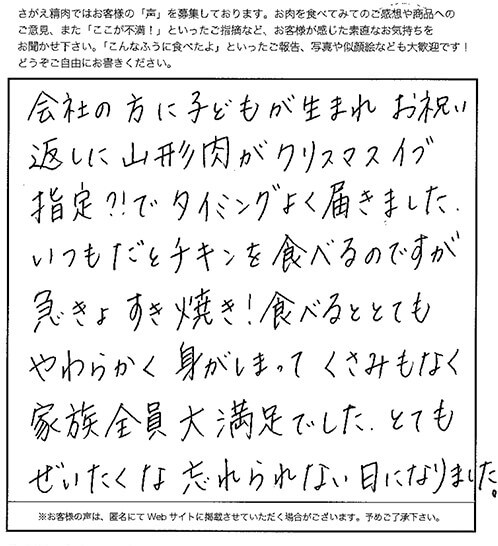 さがえ精肉ではお客様の「声」を募集しております。お肉を食べてみてのご感想や商品への
ご意見、また「ここが不満！」といったご指摘など、お客様が感じた素直なお気持ちを
お聞かせ下さい。「こんなふうに食べたよ」といったご報告、写真や似顔絵なども大歓迎です！
どうぞご自由にお書きください。
会社の方に子どもが生まれ お祝い
返しに 山形肉が クリスマスイブ
指定?!で タイミングよく届きました.
いつもだとチキンを食べるのですが
急きょ すき焼き！食べるととても
やわらかく 身がしまって くさみもなく
家族全員 大満足でした. とても
ぜいたくな 忘れられない日になりました。
※お客様の声は、匿名にて Web サイトに掲載させていただく場合がございます。予めご了承下さい。